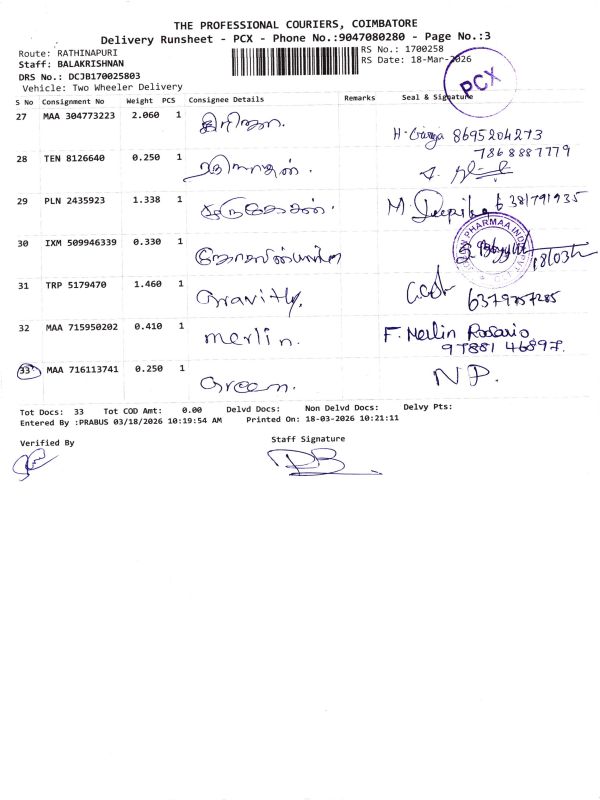 THE PROFESSIONAL COURIERS, COIMBATORE
Delivery Runsheet - PCX - Phone No.:9047080280 - Page No.:3
Route: RATHINAPURI
RS No.: 1700258
Staff: BALAKRISHNAN
RS Date: 18-Mar-2026
DRS No.: DCJB170025803
Vehicle: Two Wheeler Delivery
PCX
S No Consignment No Weight PCS Consignee Details Remarks Seal & Signature
27 MAA 304773223 2.060 1 H. Ganga 8695204273
28 TEN 8126640 0.250 1 7868887779
29 PLN 2435923 1.338 1 M. Deepika 6381791935
30 IXM 509946339 0.330 1 18/03/26
31 TRP 5179470 1.460 1 Gravity. 6379757285
32 MAA 715950202 0.410 1 merlin. F. Merlin Rosario
97881 46897.
33 MAA 716113741 0.250 1 Green. NP.
Tot Docs: 33 Tot COD Amt: 0.00 Delvd Docs: Non Delvd Docs: Delvy Pts:
Entered By :PRABUS 03/18/2026 10:19:54 AM Printed On: 18-03-2026 10:21:11
Verified By
Staff Signature